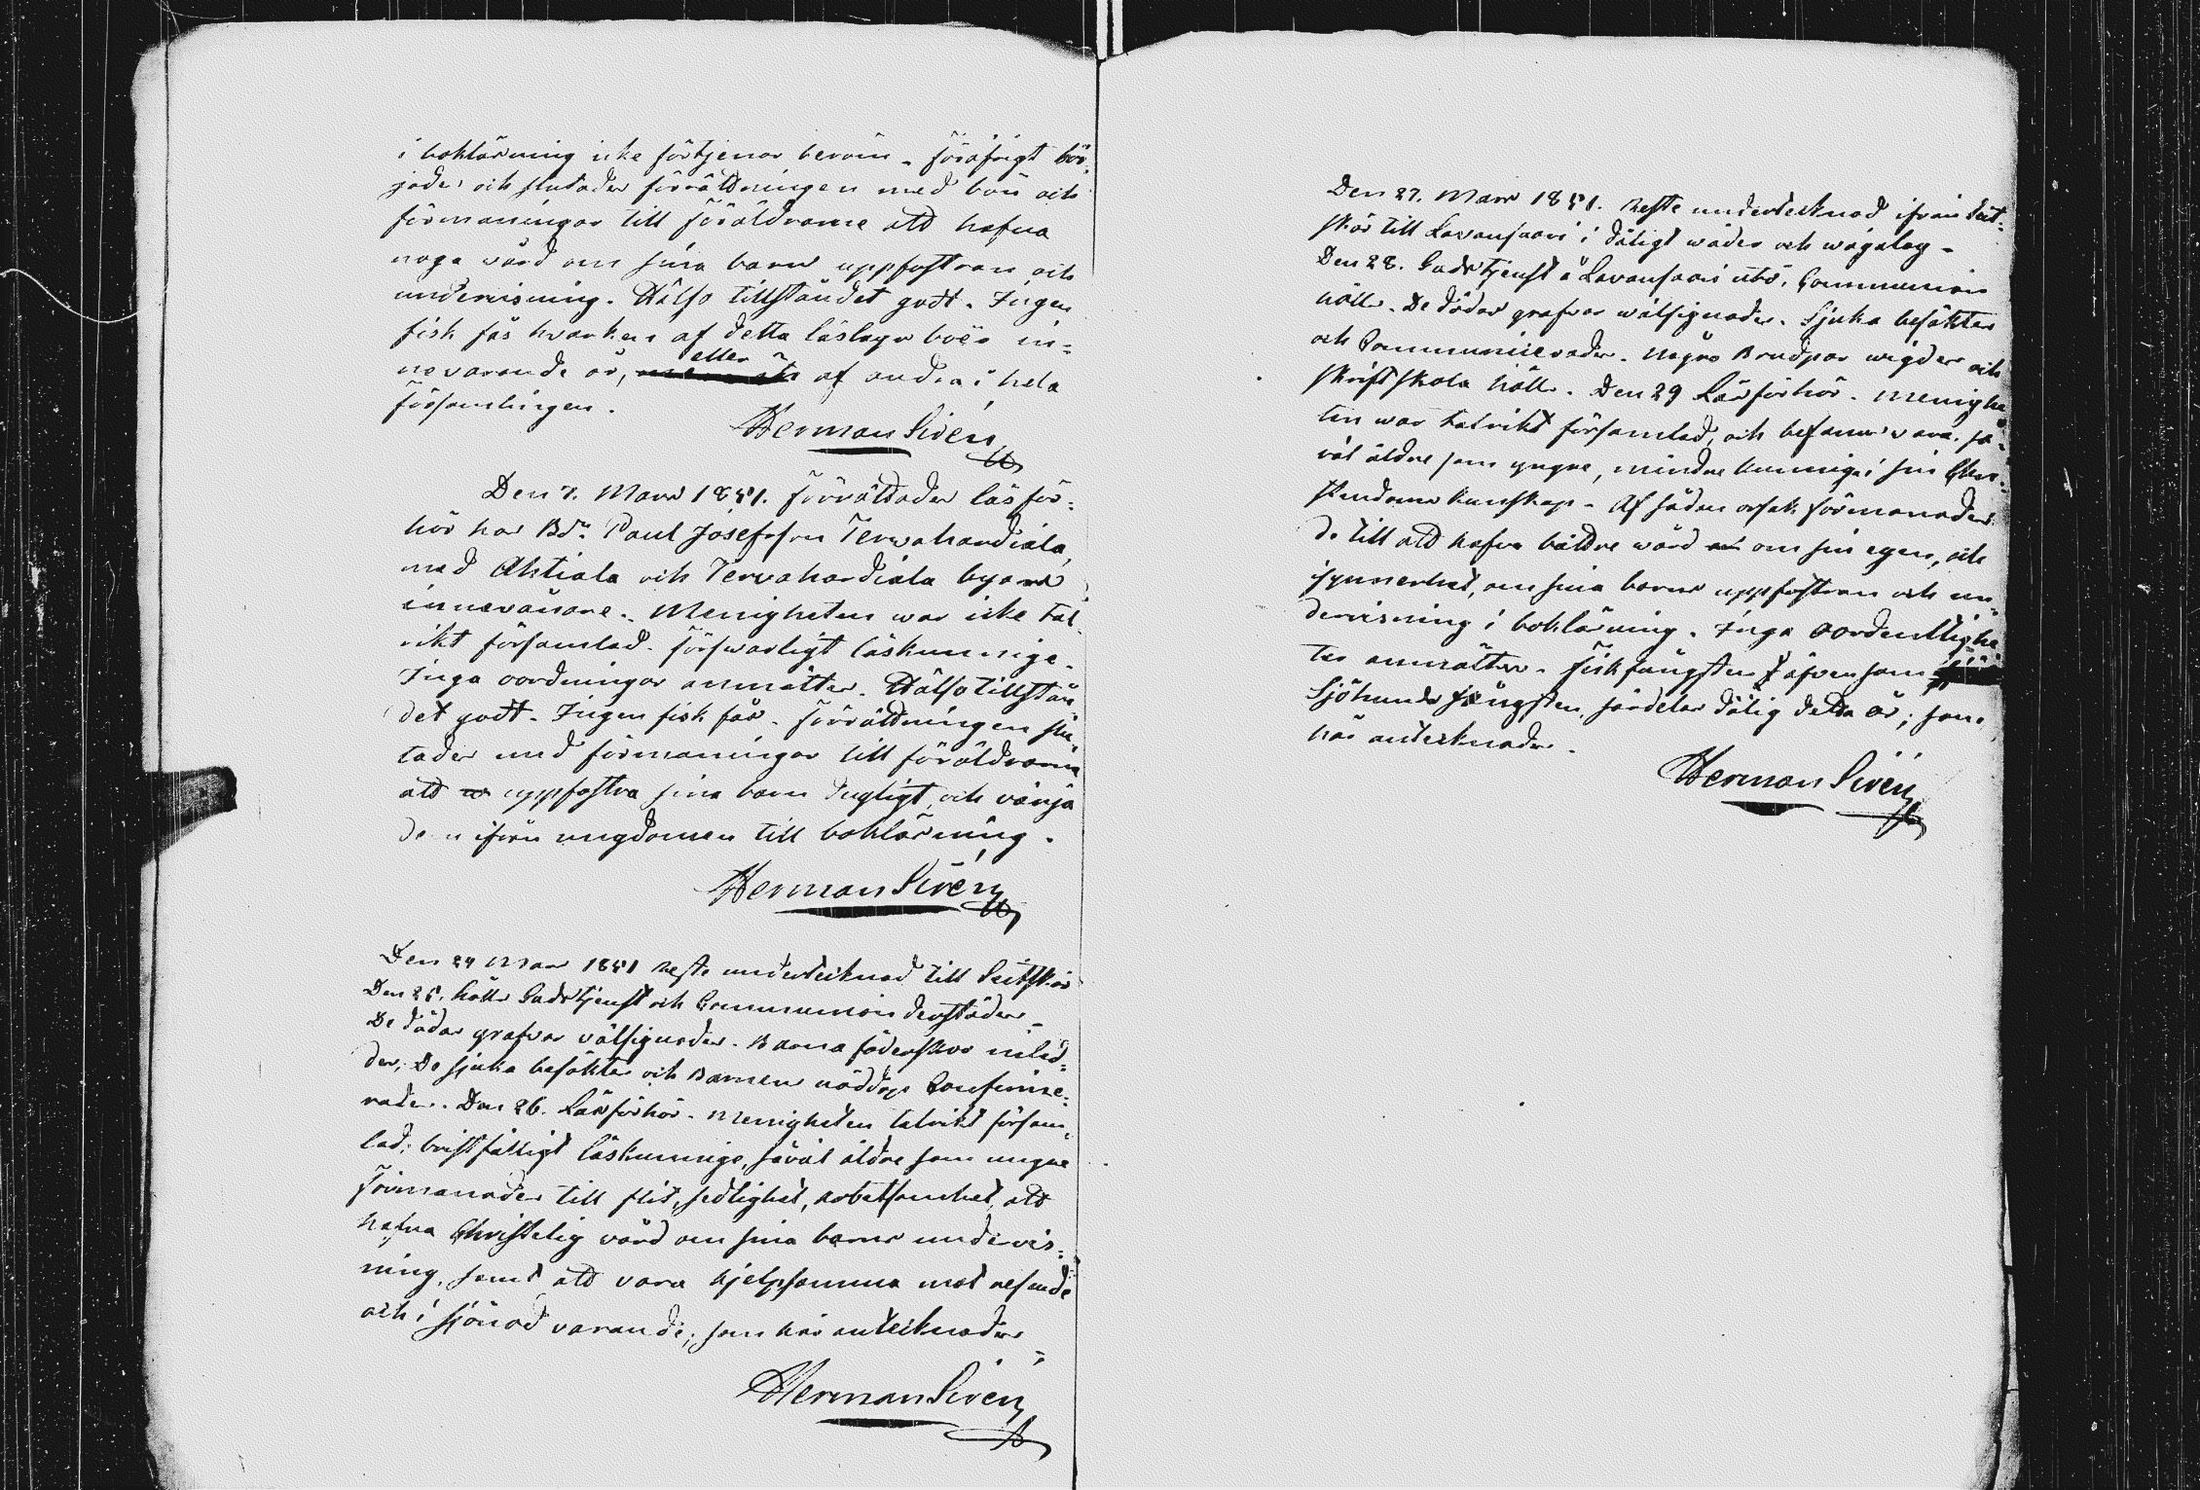 i boklärning icke förtjenar beröm. Föröfrigt bör-
jades och slutades förrättningen med bön och
förmaningar till föräldrarne att hafva
noga vård om sina barns uppfostran och
undervisning. Hälso tillståndet godt. Ingen
fisk fås hvarken af detta läslags boer in=
nevarande år, eller af andra i hela
församlingen.
Herman Sirén
Den 7. Mars 1851. förrättades läsför=
hör hos Bd. Paul Josefsson Terwahardiala,
med Ahtiala och Tervahardiala byars
innevånare. Menigheten war icke tal
rikt församlad. Försvarligt läskunnige.
Inga oordningar anmältes. Hälso tillstån
det godt. Ingen fisk fås. Förrättningen slu-
tades med förmaningar till föräldrarne
att uppfostra sina barn dugligt, och vänja
dem ifrån ungdomen till boklärning.
Herman Sirén
Den 24 Mars 1851 reste undertecknad till Seitskär
Den 25. hölls Gudstjenst och Communion derstädes
De dödas grafvar välsignades. Barna föderskor inled=
des; De sjuka besöktes och Barnens nöddop Confirme=
rades. Den 26. Läsförhör. Menigheten talrikt försam=
lad; bristfälligt läskunnige, såväl äldre som yngre
Förmanades till flit, sedlighet, arbetsamhet, att
hafva Christelig vård om sina barns undervis=
ning, samt att vara hjelpsamma mot resande
och i sjönöd varande; som här antecknades
Herman Sirén
Den 27. Mars 1851. reste undertecknad ifrån Seit=
skär till Lavansaari i dåligt wäder och wägalag.
Den 28. Gudstjenst å Lavansaari, Communion
hölls. De dödas grafvar wälsignades. Sjuka besöktes
och Communicerades. Några Brudpar wigdes och
skriftskola hölls. Den 29 Läsförhör. Menighe
ten war talrikt församlad, och befanns vara, så=
väl äldre som yngre, mindre kunnige i sin Chri=
stendoms kunskap. Af sådan orsak förmanades
de till att hafva bättre wård om sin egen, och
synnerhet, om sina barns uppfostran och un=
dervisning i boklärning. Inga oordentlighe
ter anmältes. Fiskfångsten äfvensom
Sjöhunds fångsten, särdeles dålig detta år; som
här antecknades.
Herman Sirén